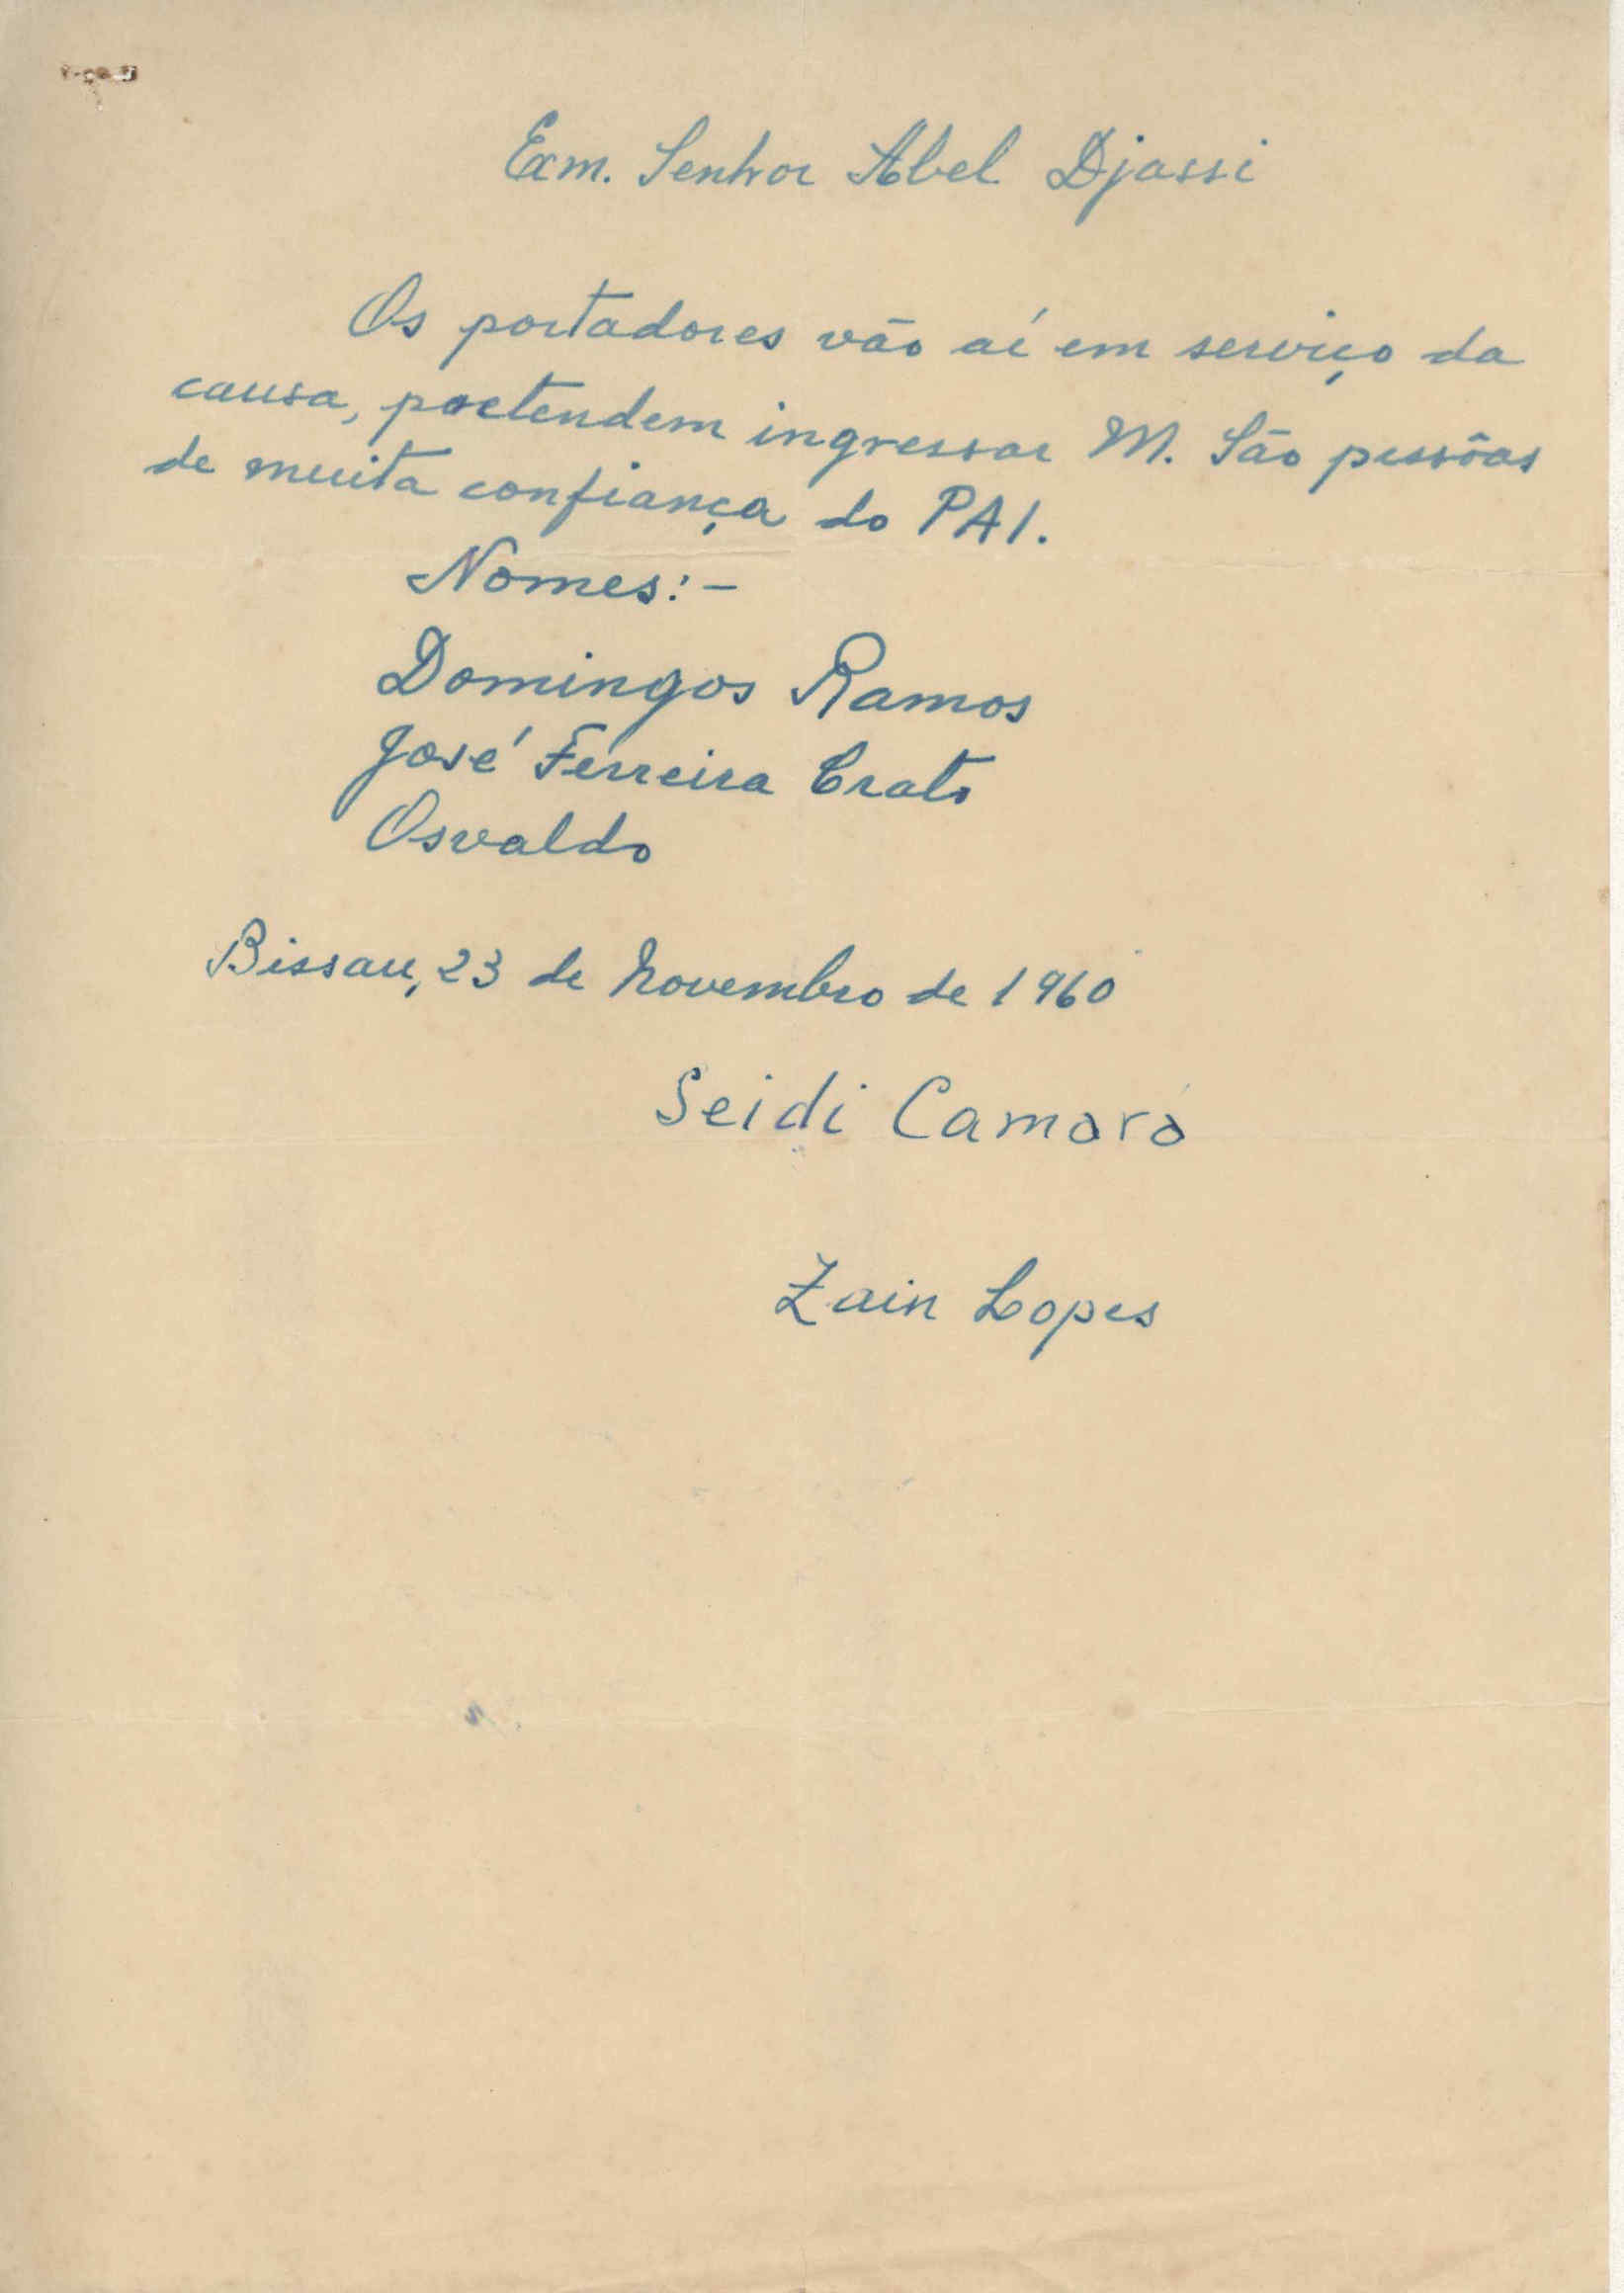 Exm. Senhor Abel Djassi
Os portadores vão aí em serviço da
causa, pretendem ingressar M. São pessôas
de muita confiança do PAI.
Nomes:-
Domingos Ramos
José Ferreira Crato
Osvaldo
Bissau, 23 de Novembro de 1960
Seidi Camará
Zain Lopes